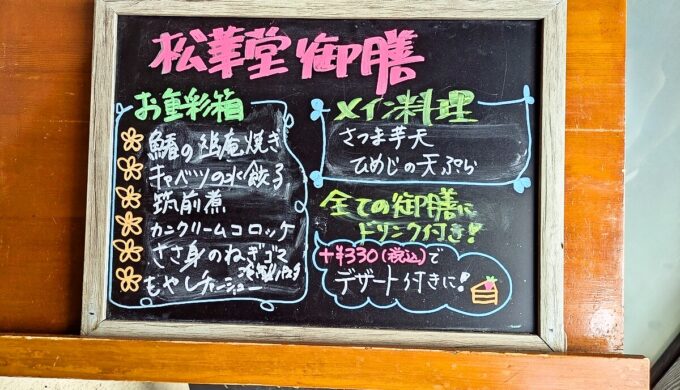 松華堂御膳
お重彩箱
鰆の幽庵焼き
キャベツの水餃子
筑前煮
カニクリームコロッケ
ささ身のねぎゴマ
もやしチャーシュー
メイン料理
さつま芋天
ひめじの天ぷら
全ての御膳に
ドリンク付き!
+¥330(税込)で
デザート付きに!